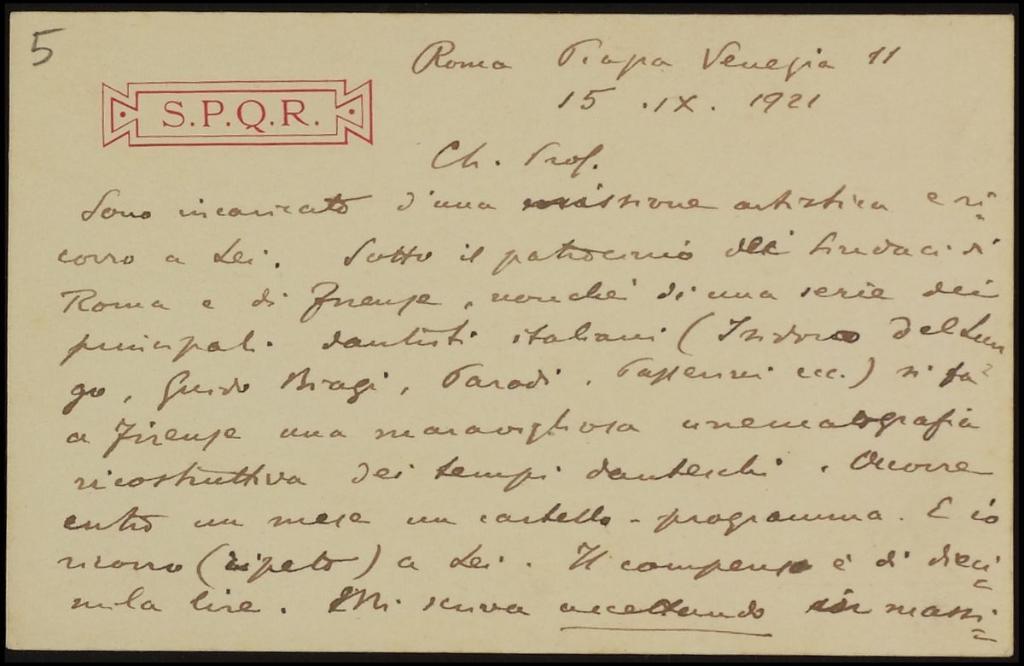 5
Roma Piazza Venezia 11
15 . IX . 1921
S.P.Q.R.
Ch. Prof.
Sono incaricato d'una missione artistica e ri=
corro a Lei. Sotto il patrocinio dei Sindaci di
Roma e di Firenze, nonché di una serie dei
principali dantisti italiani (Isidoro Del Lun
go, Guido Biagi, Parodi, Passerini ecc.) si fa
a Firenze una maravigliosa cinematografia
ricostruttiva dei tempi danteschi. Occorre
entro un mese un cartello-programma. E io
ricorro (ripeto) a Lei. Il compenso è di dieci=
mila lire. Mi scriva accettando in massi=